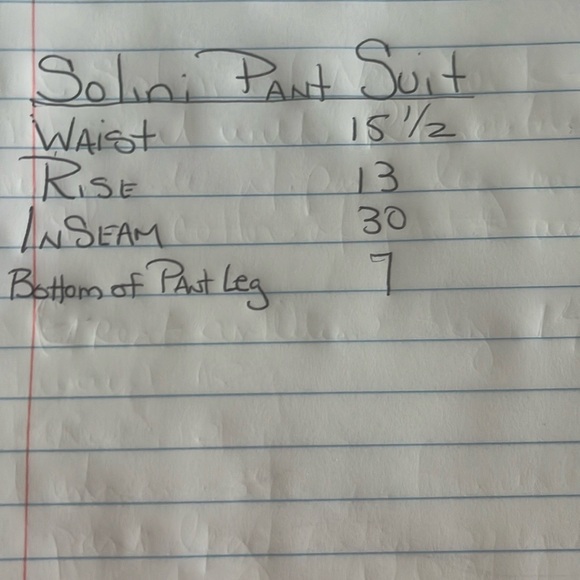 Solini Pant Suit
Waist 15 1/2
Rise 13
Inseam 30
Bottom of Pant Leg 7